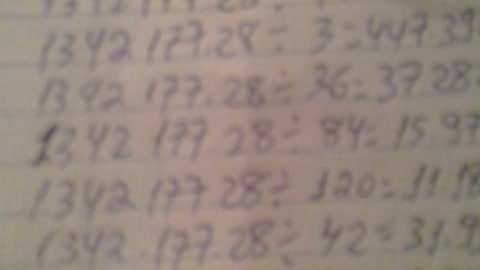 1342177.28÷3=447.39
1342177.28÷36=37.28
1342177.28÷84=15.97
1342177.28÷120=11.18
1342.177.28÷42=31.9